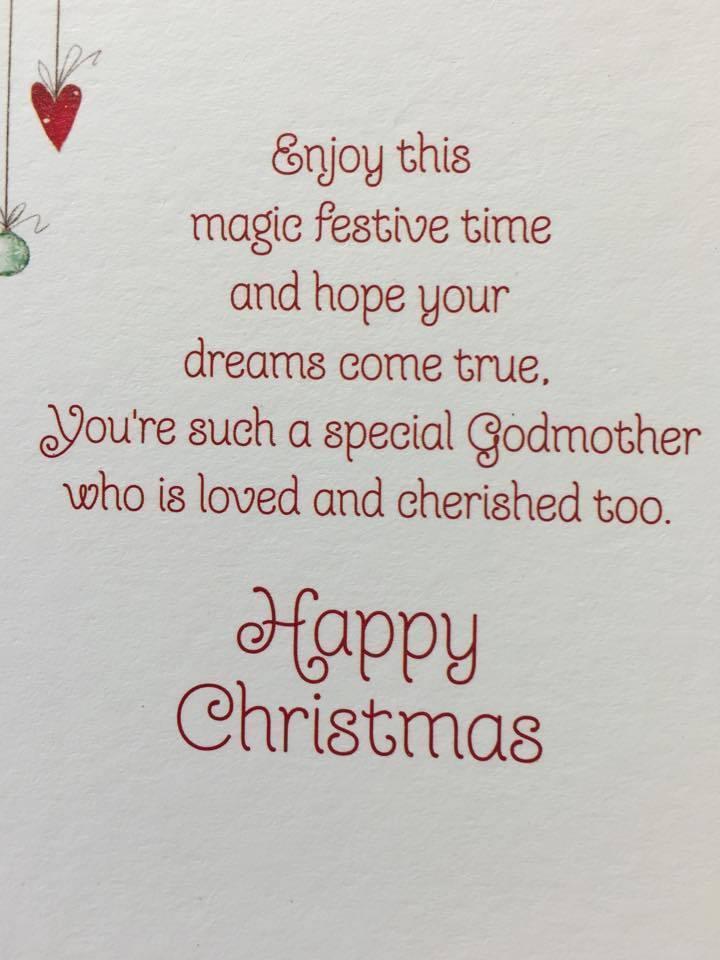 Enjoy this
magic festive time
and hope your
dreams come true,
You're such a special Godmother
who is loved and cherished too.
Happy
Christmas